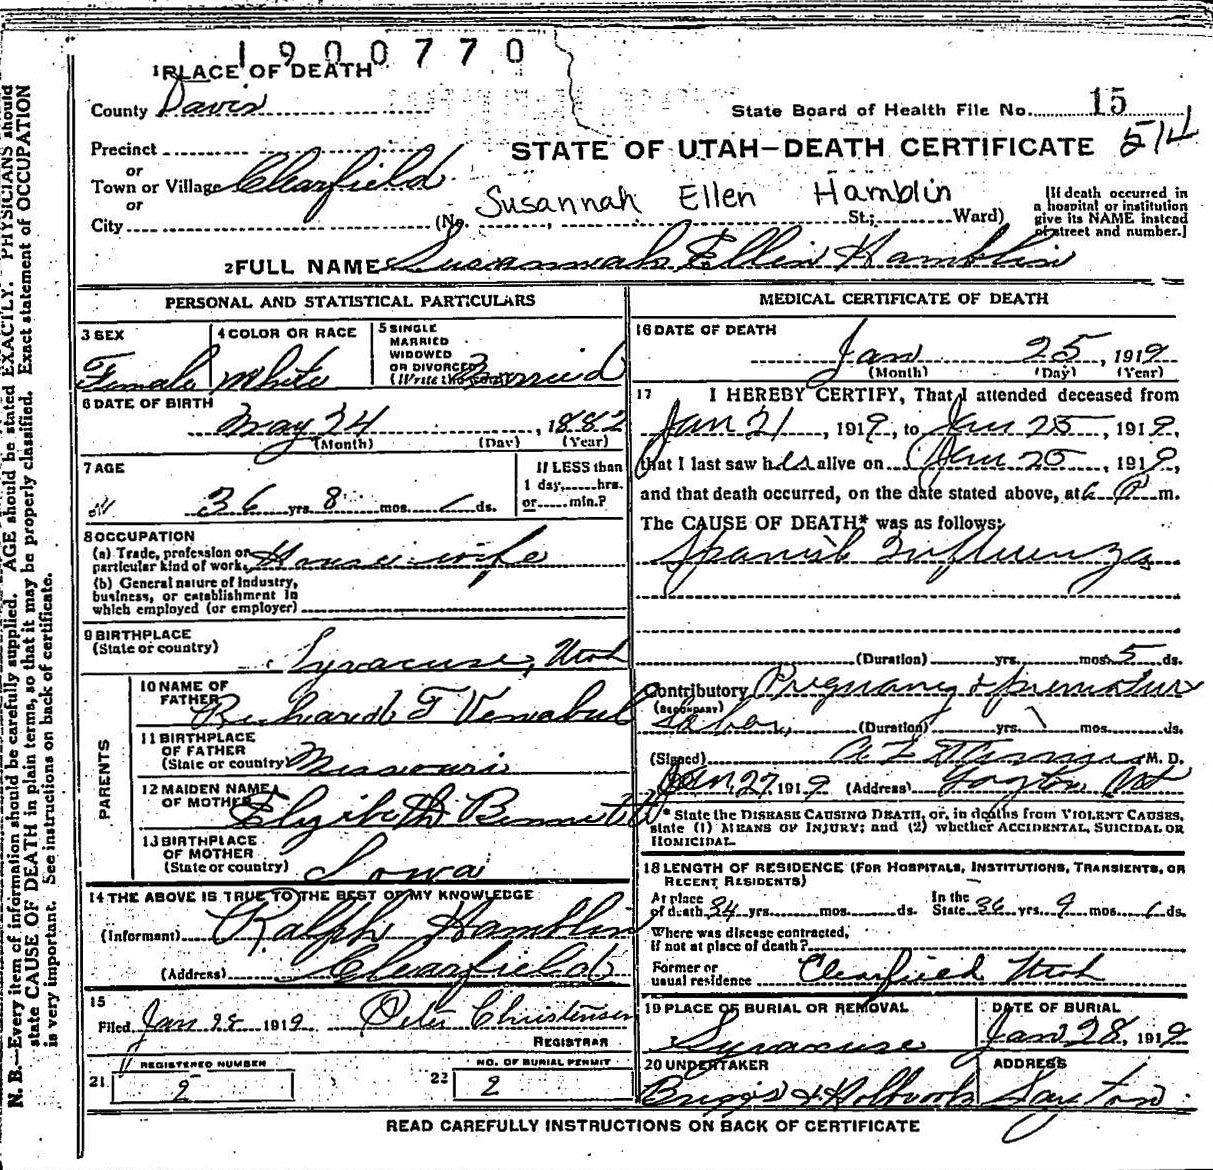 1900770
1 PLACE OF DEATH
County Davis
State Board of Health File No. 15
514
Precinct
or
Town or Village Clearfield
or
City (No. St.; Ward)
STATE OF UTAH—DEATH CERTIFICATE
Susannah Ellen Hamblin
[If death occurred in
a hospital or institution
give its NAME instead
of street and number.]
2 FULL NAME Susannah Ellen Hamblin
PERSONAL AND STATISTICAL PARTICULARS
3 SEX
Female
4 COLOR OR RACE
White
5 SINGLE
MARRIED
WIDOWED
OR DIVORCED
(Write the word)
Married
6 DATE OF BIRTH
May 24, 1882
(Month) (Day) (Year)
7 AGE
36 yrs. 8 mos. 1 ds.
If LESS than
1 day, hrs.
or min.?
8 OCCUPATION
(a) Trade, profession or
particular kind of work, Housewife
(b) General nature of Industry,
business, or establishment in
which employed (or employer)
9 BIRTHPLACE
(State or country)
Syracuse, Utah
PARENTS
10 NAME OF
FATHER
Richard T Venable
11 BIRTHPLACE
OF FATHER
(State or country) Missouri
12 MAIDEN NAME
OF MOTHER
Elizibeth Bennett
13 BIRTHPLACE
OF MOTHER
(State or country) Iowa
14 THE ABOVE IS TRUE TO THE BEST OF MY KNOWLEDGE
(Informant) Ralph Hamblin
(Address) Clearfield
15
Filed Jan 28 1919 Peter Christensen
REGISTRAR
REGISTERED NUMBER
21. 2
NO. OF BURIAL PERMIT
22 2
MEDICAL CERTIFICATE OF DEATH
16 DATE OF DEATH
Jan 25, 1919
(Month) (Day) (Year)
17 I HEREBY CERTIFY, That I attended deceased from
Jan 21, 1919, to Jan 25, 1919,
that I last saw her alive on Jan 25, 1919,
and that death occurred, on the date stated above, at 6 P m.
The CAUSE OF DEATH* was as follows:
Spanish Influenza
(Duration) yrs. mos. 5 ds.
Contributory Pregnancy & premature
(SECONDARY)
labor, (Duration) yrs. mos. ds.
(Signed) M. D.
Jan, 27, 1919 (Address) Layton Ut
* State the DISEASE CAUSING DEATH, or, in deaths from VIOLENT CAUSES,
state (1) MEANS OF INJURY; and (2) whether ACCIDENTAL, SUICIDAL OR
HOMICIDAL.
18 LENGTH OF RESIDENCE (FOR HOSPITALS, INSTITUTIONS, TRANSIENTS, OR
RECENT RESIDENTS)
At place In the
of death 34 yrs. mos. ds. State 36 yrs. 9 mos. 1 ds.
Where was disease contracted,
if not at place of death?
Former or
usual residence Clearfield Utah
19 PLACE OF BURIAL OR REMOVAL
Syracuse
DATE OF BURIAL
Jan 28, 1919
20 UNDERTAKER
Briggs & Holbrook
ADDRESS
Layton
READ CAREFULLY INSTRUCTIONS ON BACK OF CERTIFICATE
N. B.—Every item of information should be carefully supplied. AGE should be stated EXACTLY. PHYSICIANS should
state CAUSE OF DEATH in plain terms, so that it may be properly classified. Exact statement of OCCUPATION
is very important. See instructions on back of certificate.